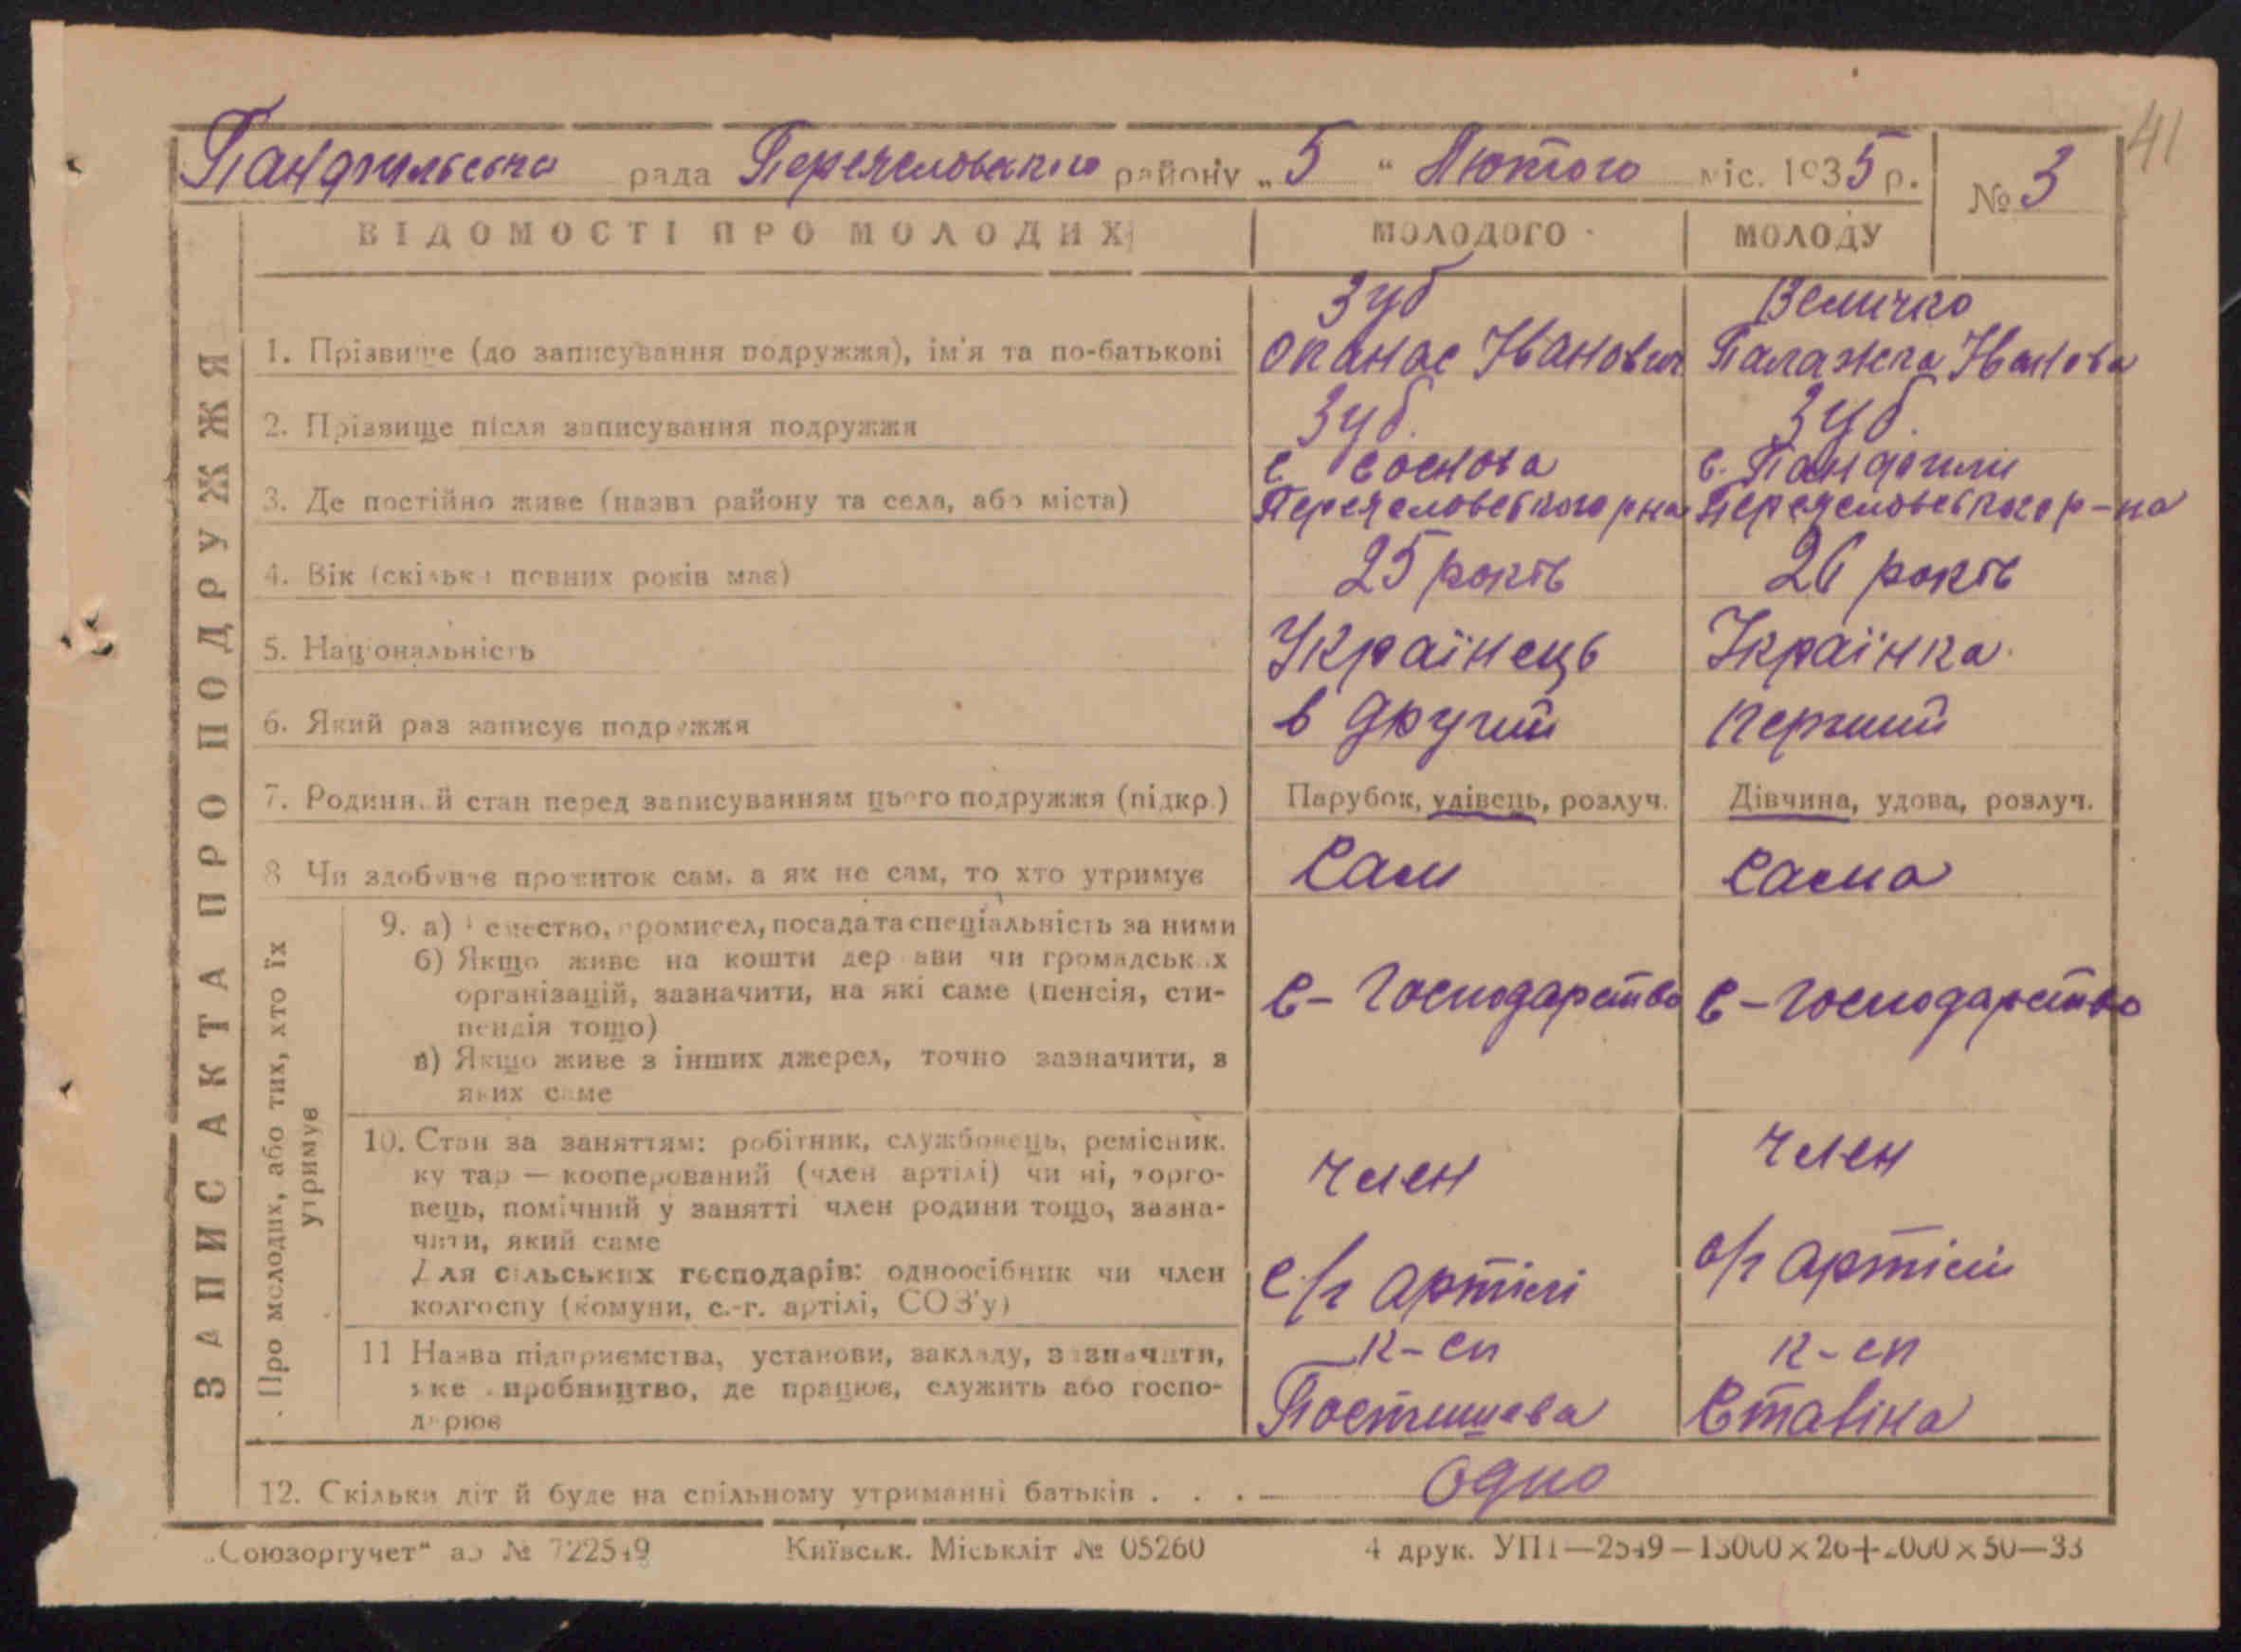 41
Панфильська рада Переяславського району „5“ Лютого міс. 1935 р. № 3
ВІДОМОСТІ ПРО МОЛОДИХ МОЛОДОГО МОЛОДУ
ЗАПИС АКТА ПРО ПОДРУЖЖЯ
Зуб Величко
1. Прізвище (до записування подружжя), ім'я та по-батькові Опанас Іванович Палажка Іванова
2. Прізвище після записування подружжя Зуб. Зуб.
с Соснова с. Панфили
3. Де постійно живе (назва району та села, або міста) Переяславського рна Переяславського р-на
4. Вік (скільки повних років має) 25 років 26 років
5. Національність Українець Українка
6. Який раз записує подружжя в другий перший
7. Родинний стан перед записуванням цього подружжя (підкр.) Парубок, удівець, розлуч. Дівчина, удова, розлуч.
8 Чи здобуває прожиток сам, а як не сам, то хто утримує Сам Сама
Про молодих, або тих, хто їх утримує
9. а) промисел, посада та спеціальність за ними
б) Якщо живе на кошти держави чи громадських
організацій, зазначити, на які саме (пенсія, сти- с-господарство с-господарство
пендія тощо)
в) Якщо живе з інших джерел, точно зазначити, з
яких саме
10. Стан за заняттям: робітник, службовець, ремісник,
кустар — кооперований (член артілі) чи ні, торго- член член
вець, помічний у занятті член родини тощо, зазна-
чити, який саме
Для сільських господарів: одноосібник чи член с/г артілі с/г артілі
колгоспу (комуни, с.-г. артілі, СОЗ'у)
11 Назва підприємства, установи, закладу, зазначити, к-сп к-сп
яке виробництво, де працює, служить або госпо- Постишева Сталіна
дарює
12. Скільки дітей буде на спільному утриманні батьків . . . Одно
„Союзоргучет“ № 722549 Київськ. Міськліт № 05260 4 друк. УПП—2549—